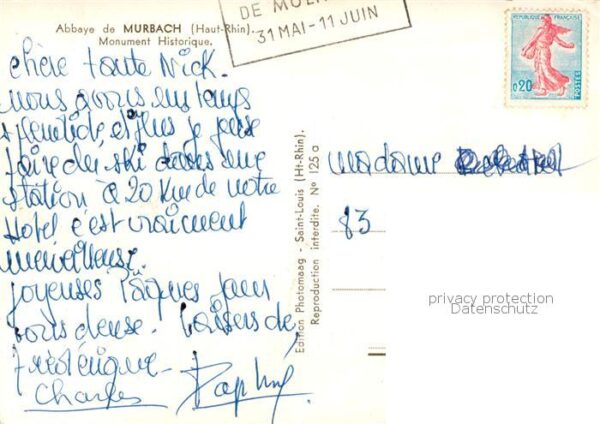 Abbaye de MURBACH (Haut-Rhin).
Monument Historique.
DE MUL
31 MAI-11 JUIN
RÉPUBLIQUE FRANÇAISE
0,20
POSTES
chère tante Nick.
nous avons un temps
splendide, et plus je peux
faire du ski dans une
station à 20 Km de notre
Hotel c'est vraiment
merveilleux.
Joyeuses Pâques pour
vous deux. baisers de,
Frédérique
Charles
Edition Photomaag - Saint-Louis (Ht-Rhin).
Reproduction interdite. N° 125 a
Madame
83
privacy protection
Datenschutz